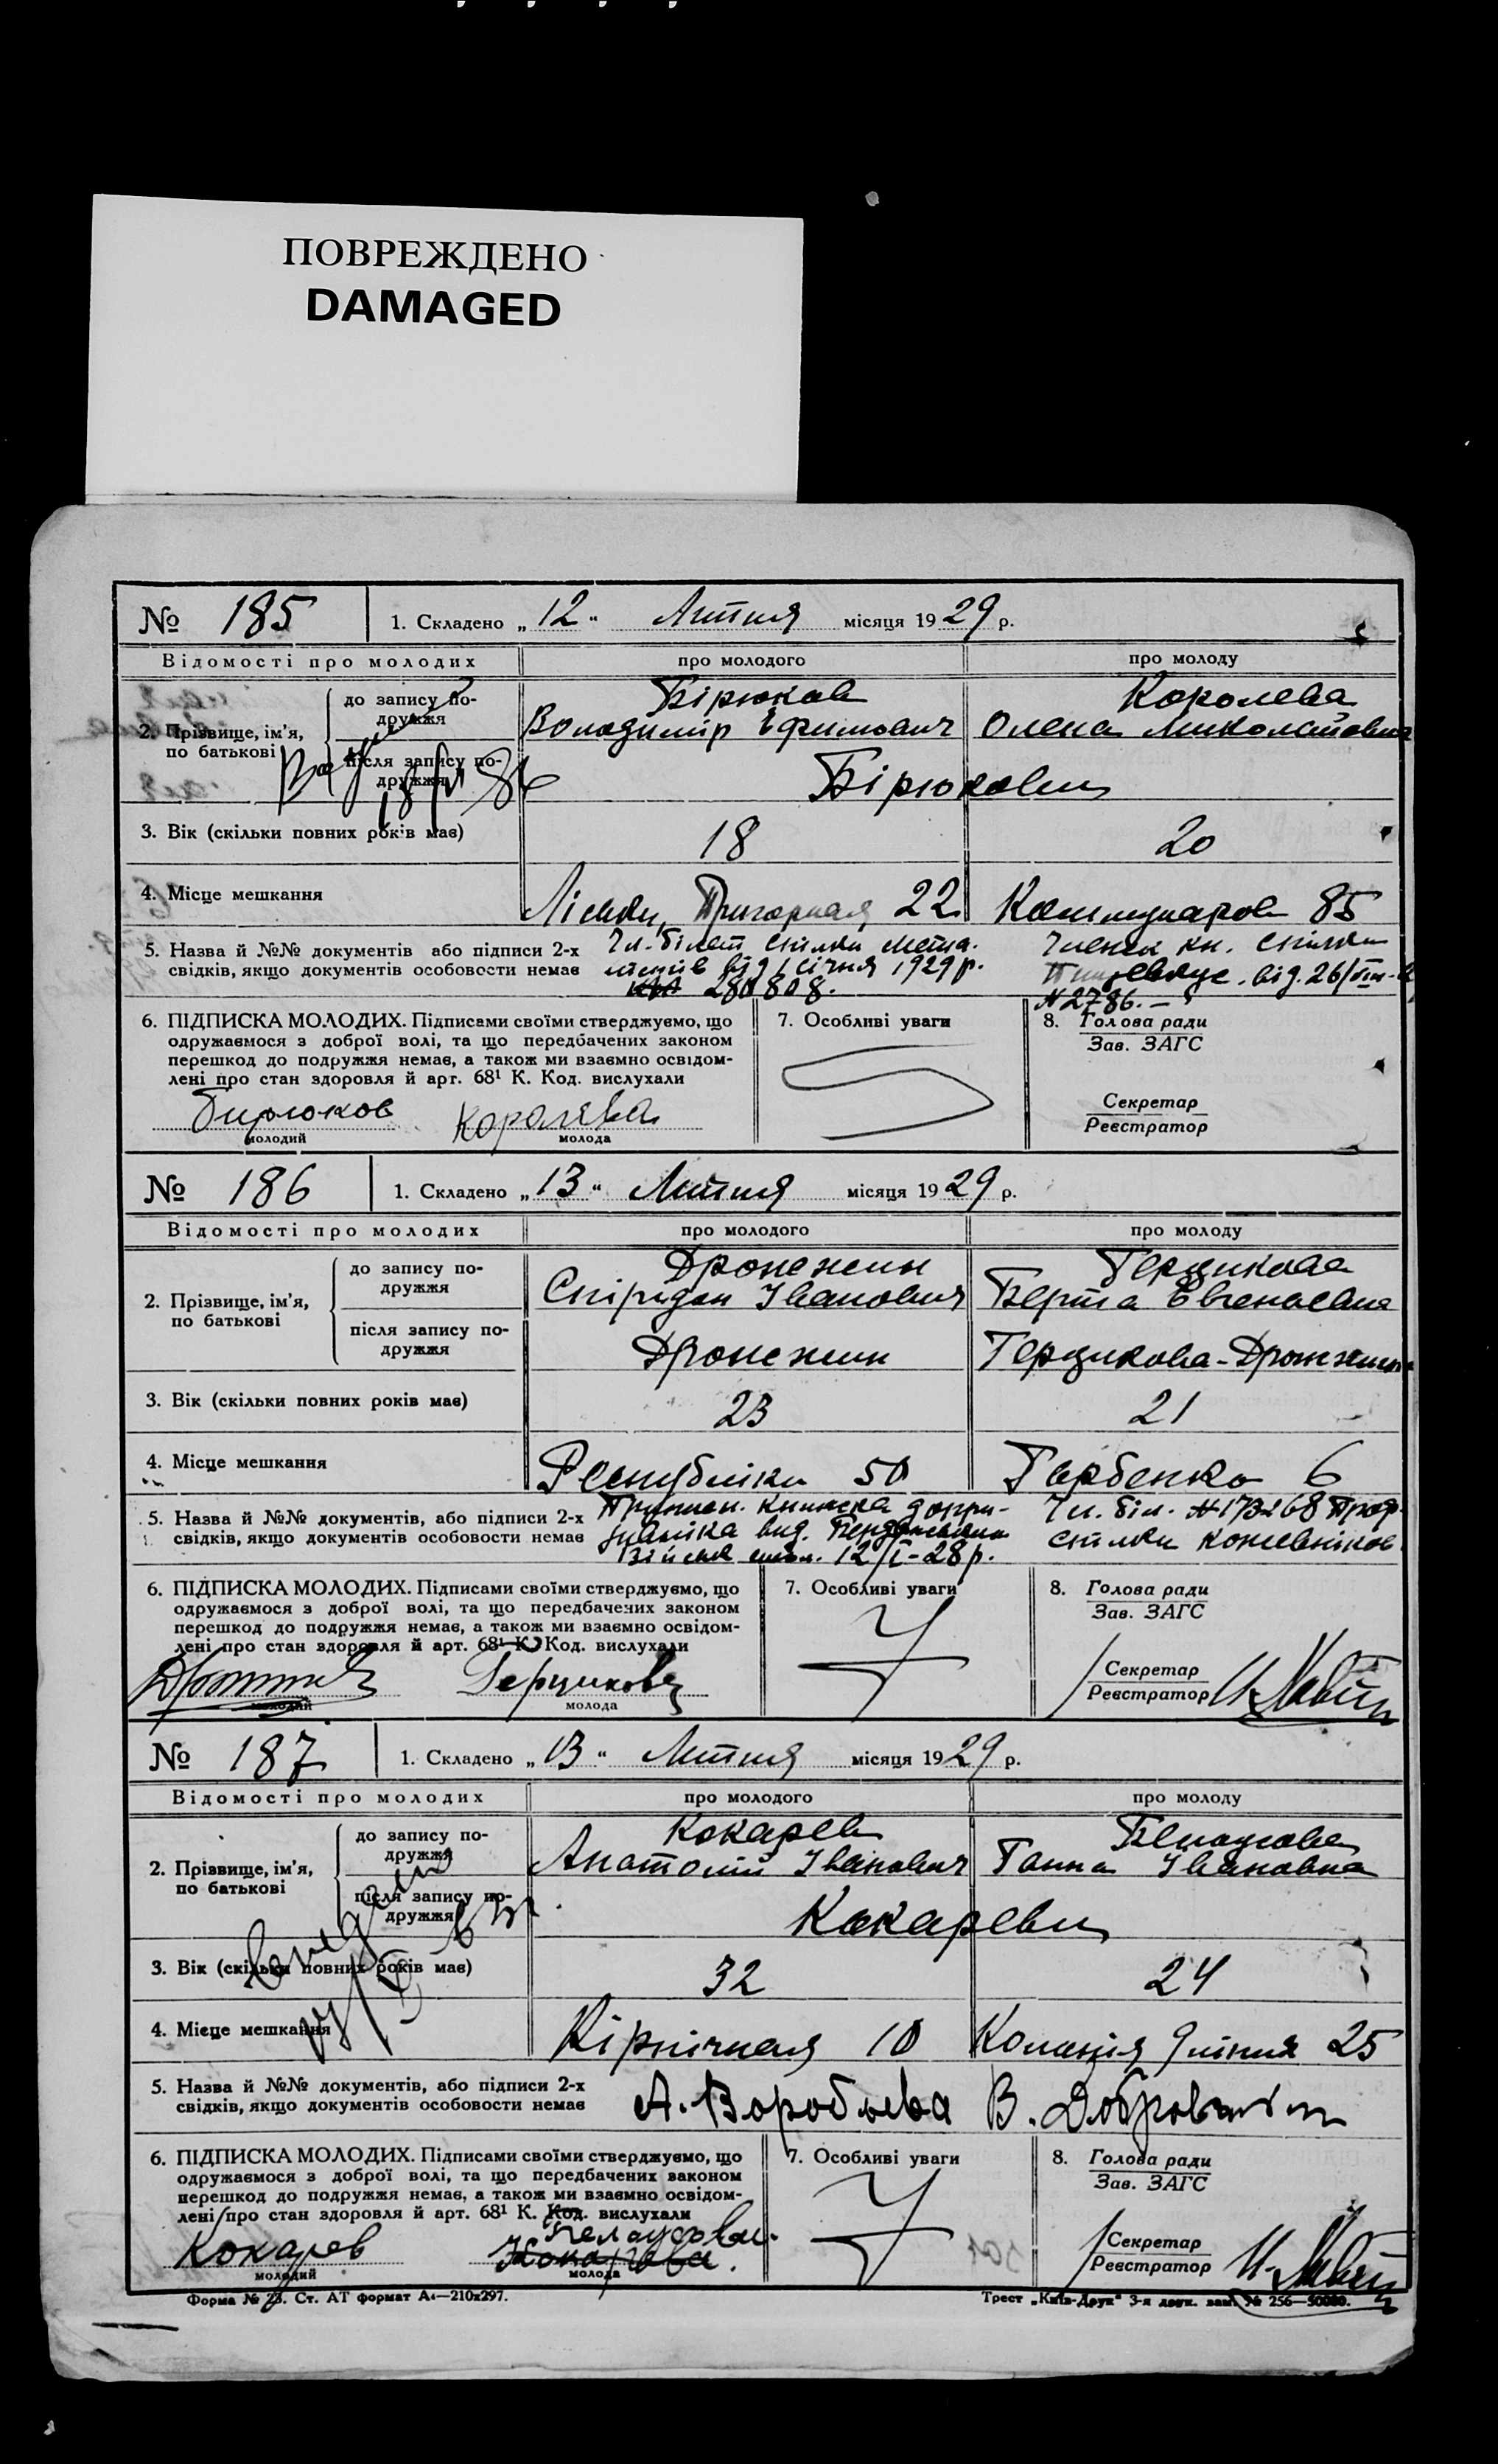 ПОВРЕЖДЕНО
DAMAGED
№ 185 1. Складено „ 12 “ Липня місяця 19 29 р.
Відомості про молодих про молодого про молоду
2. Прізвище, ім'я, по батькові
до запису подружжя
Бірюков Королева
Володимір Ефимович Олена Миколаївна
після запису подружжя
Бірюкови
3. Вік (скільки повних років має) 18 20
4. Місце мешкання Пригорная 22 Комунаров 85
5. Назва й №№ документів або підписи 2-х Чл. білет спілки мета- Членск кн. спілки
свідків, якщо документів особовости немає від 1 січня 1929 р. від. 26/
280808. № 2786. –
6. ПІДПИСКА МОЛОДИХ. Підписами своїми стверджуємо, що
одружаємося з доброї волі, та що передбачених законом
перешкод до подружжя немає, а також ми взаємно освідом-
лені про стан здоровля й арт. 68¹ К. Код. вислухали
Бирюков Королева
молодий молода
7. Особливі уваги
8. Голова ради
Зав. ЗАГС
Секретар
Реєстратор
№ 186 1. Складено „ 13 “ Липня місяця 19 29 р.
Відомості про молодих про молодого про молоду
2. Прізвище, ім'я, по батькові
до запису подружжя
Дрожжин Герцикова
Спірідон Іванович Берта Евгеновна
після запису подружжя
Дрожжин Герцикова-Дрожжина
3. Вік (скільки повних років має) 23 21
4. Місце мешкання Республіки 50 Горбенко 6
5. Назва й №№ документів, або підписи 2-х книжка допри- Чл. біл. № 173268 Проф.
свідків, якщо документів особовости немає зивніка вид. спілки кожевніков
12/I-28 р.
6. ПІДПИСКА МОЛОДИХ. Підписами своїми стверджуємо, що
одружаємося з доброї волі, та що передбачених законом
перешкод до подружжя немає, а також ми взаємно освідом-
лені про стан здоровля й арт. 68¹ К. Код. вислухали
Герцикова
молодий молода
7. Особливі уваги
8. Голова ради
Зав. ЗАГС
Секретар
Реєстратор
№ 187 1. Складено „ 13 “ Липня місяця 19 29 р.
Відомості про молодих про молодого про молоду
2. Прізвище, ім'я, по батькові
до запису подружжя
Кокарев Белоусова
Анатолій Іванович Ганна Івановна
після запису подружжя
Кокареви
3. Вік (скільки повних років має) 32 24
4. Місце мешкання Кірпічная 10 Колонія 9 лінія 25
5. Назва й №№ документів, або підписи 2-х
свідків, якщо документів особовости немає А. Воробьева В.
6. ПІДПИСКА МОЛОДИХ. Підписами своїми стверджуємо, що
одружаємося з доброї волі, та що передбачених законом
перешкод до подружжя немає, а також ми взаємно освідом-
лені про стан здоровля й арт. 68¹ К. Код. вислухали
Белоусова
Кокарев Кокарева
молодий молода
7. Особливі уваги
8. Голова ради
Зав. ЗАГС
Секретар
Реєстратор
Форма № 23. Ст. АТ формат А₄—210x297. Трест „Київ-Друк“ 3-я друк. зам. № 256—50000.